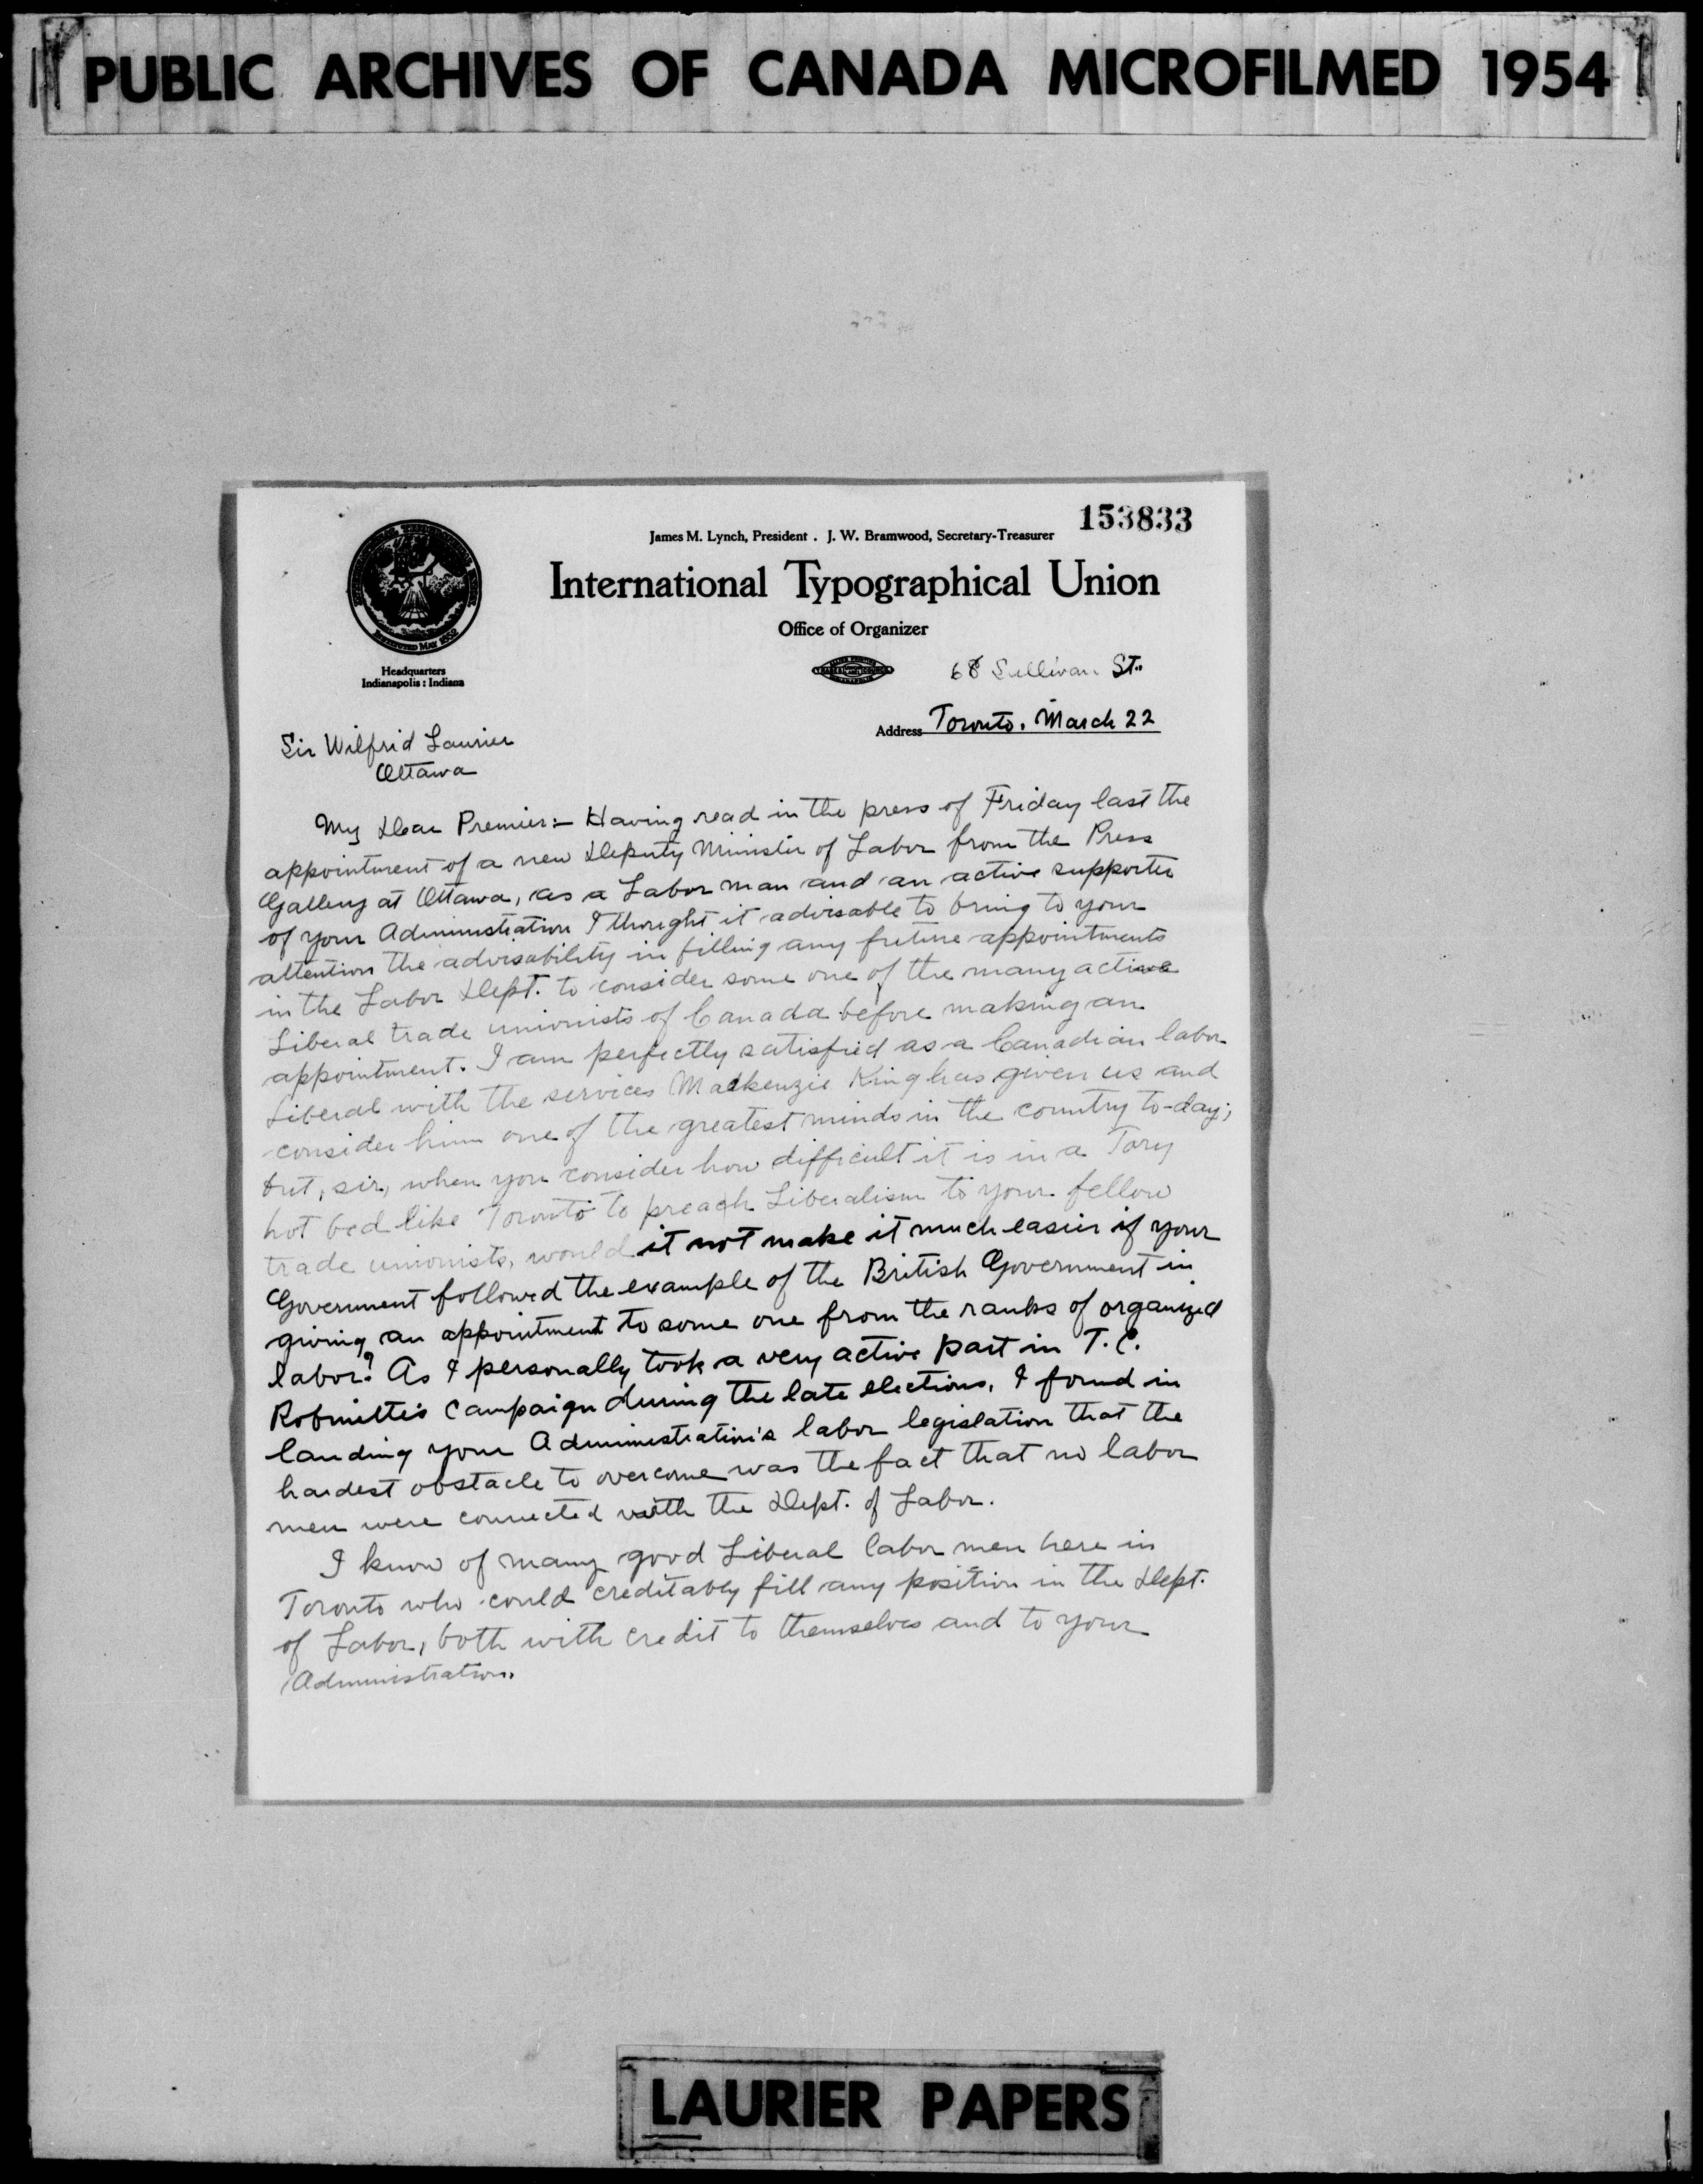 PUBLIC ARCHIVES OF CANADA MICROFILMED 1954
153833
James M. Lynch, President . J. W. Bramwood, Secretary-Treasurer
International Typographical Union
Office of Organizer
Headquarters
Indianapolis : Indiana
68 Sullivan St.
Address Toronto. March 22
Sir Wilfrid Laurier
Ottawa
My Dear Premier:- Having read in the press of Friday last the
appointment of a new Deputy Minister of Labor from the Press
Gallery at Ottawa, as a Labor man and an active supporter
of your Administration I thought it advisable to bring to your
attention the advisability in filling any future appointments
in the Labor Dept. to consider some one of the many active
Liberal trade unionists of Canada before making an
appointment. I am perfectly satisfied as a Canadian labor
Liberal with the services Mackenzie King has given us and
consider him one of the greatest minds in the country to-day;
but, sir, when you consider how difficult it is in a Tory
hot bed like Toronto to preach Liberalism to your fellow
trade unionists, would it not make it much easier if your
Government followed the example of the British Government in
giving an appointment to some one from the ranks of organized
labor? As I personally took a very active part in T. C.
Robinette's campaign during the late elections, I found in
lauding your Administration's labor legislation that the
hardest obstacle to overcome was the fact that no labor
men were connected with the Dept. of Labor.
I know of many good Liberal labor men here in
Toronto who could creditably fill any position in the Dept.
of Labor, both with credit to themselves and to your
Administration.
LAURIER PAPERS